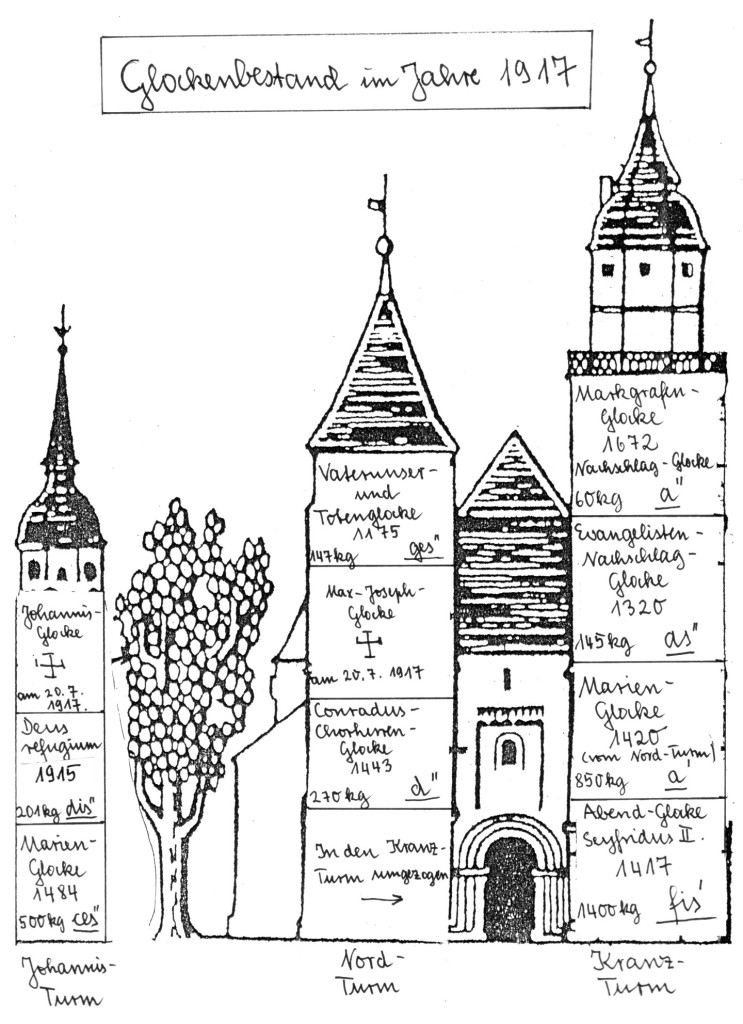 Glockenbestand im Jahre 1917
Johannis-
Glocke
am 20.7.
1917.
Deus
refugium
1915
201kg dis"
Marien-
Glocke
1484
500kg ces"
Johannis-
Turm
Vaterunser-
und
Totenglocke
1175
147kg ges"
Max-Joseph-
Glocke
am 20.7.1917
Conradus-
Chorherren-
Glocke
1443
270kg d"
In den Kranz-
Turm umgezogen
Nord-
Turm
Markgrafen-
Glocke
1672
Nachschlag-Glocke
60kg a"
Evangelisten-
Nachschlag-
Glocke
1320
145kg as"
Marien-
Glocke
1420
(vom Nord-Turm)
850kg a'
Abend-Glocke
Seyfridus II.
1417
1400kg fis'
Kranz-
Turm